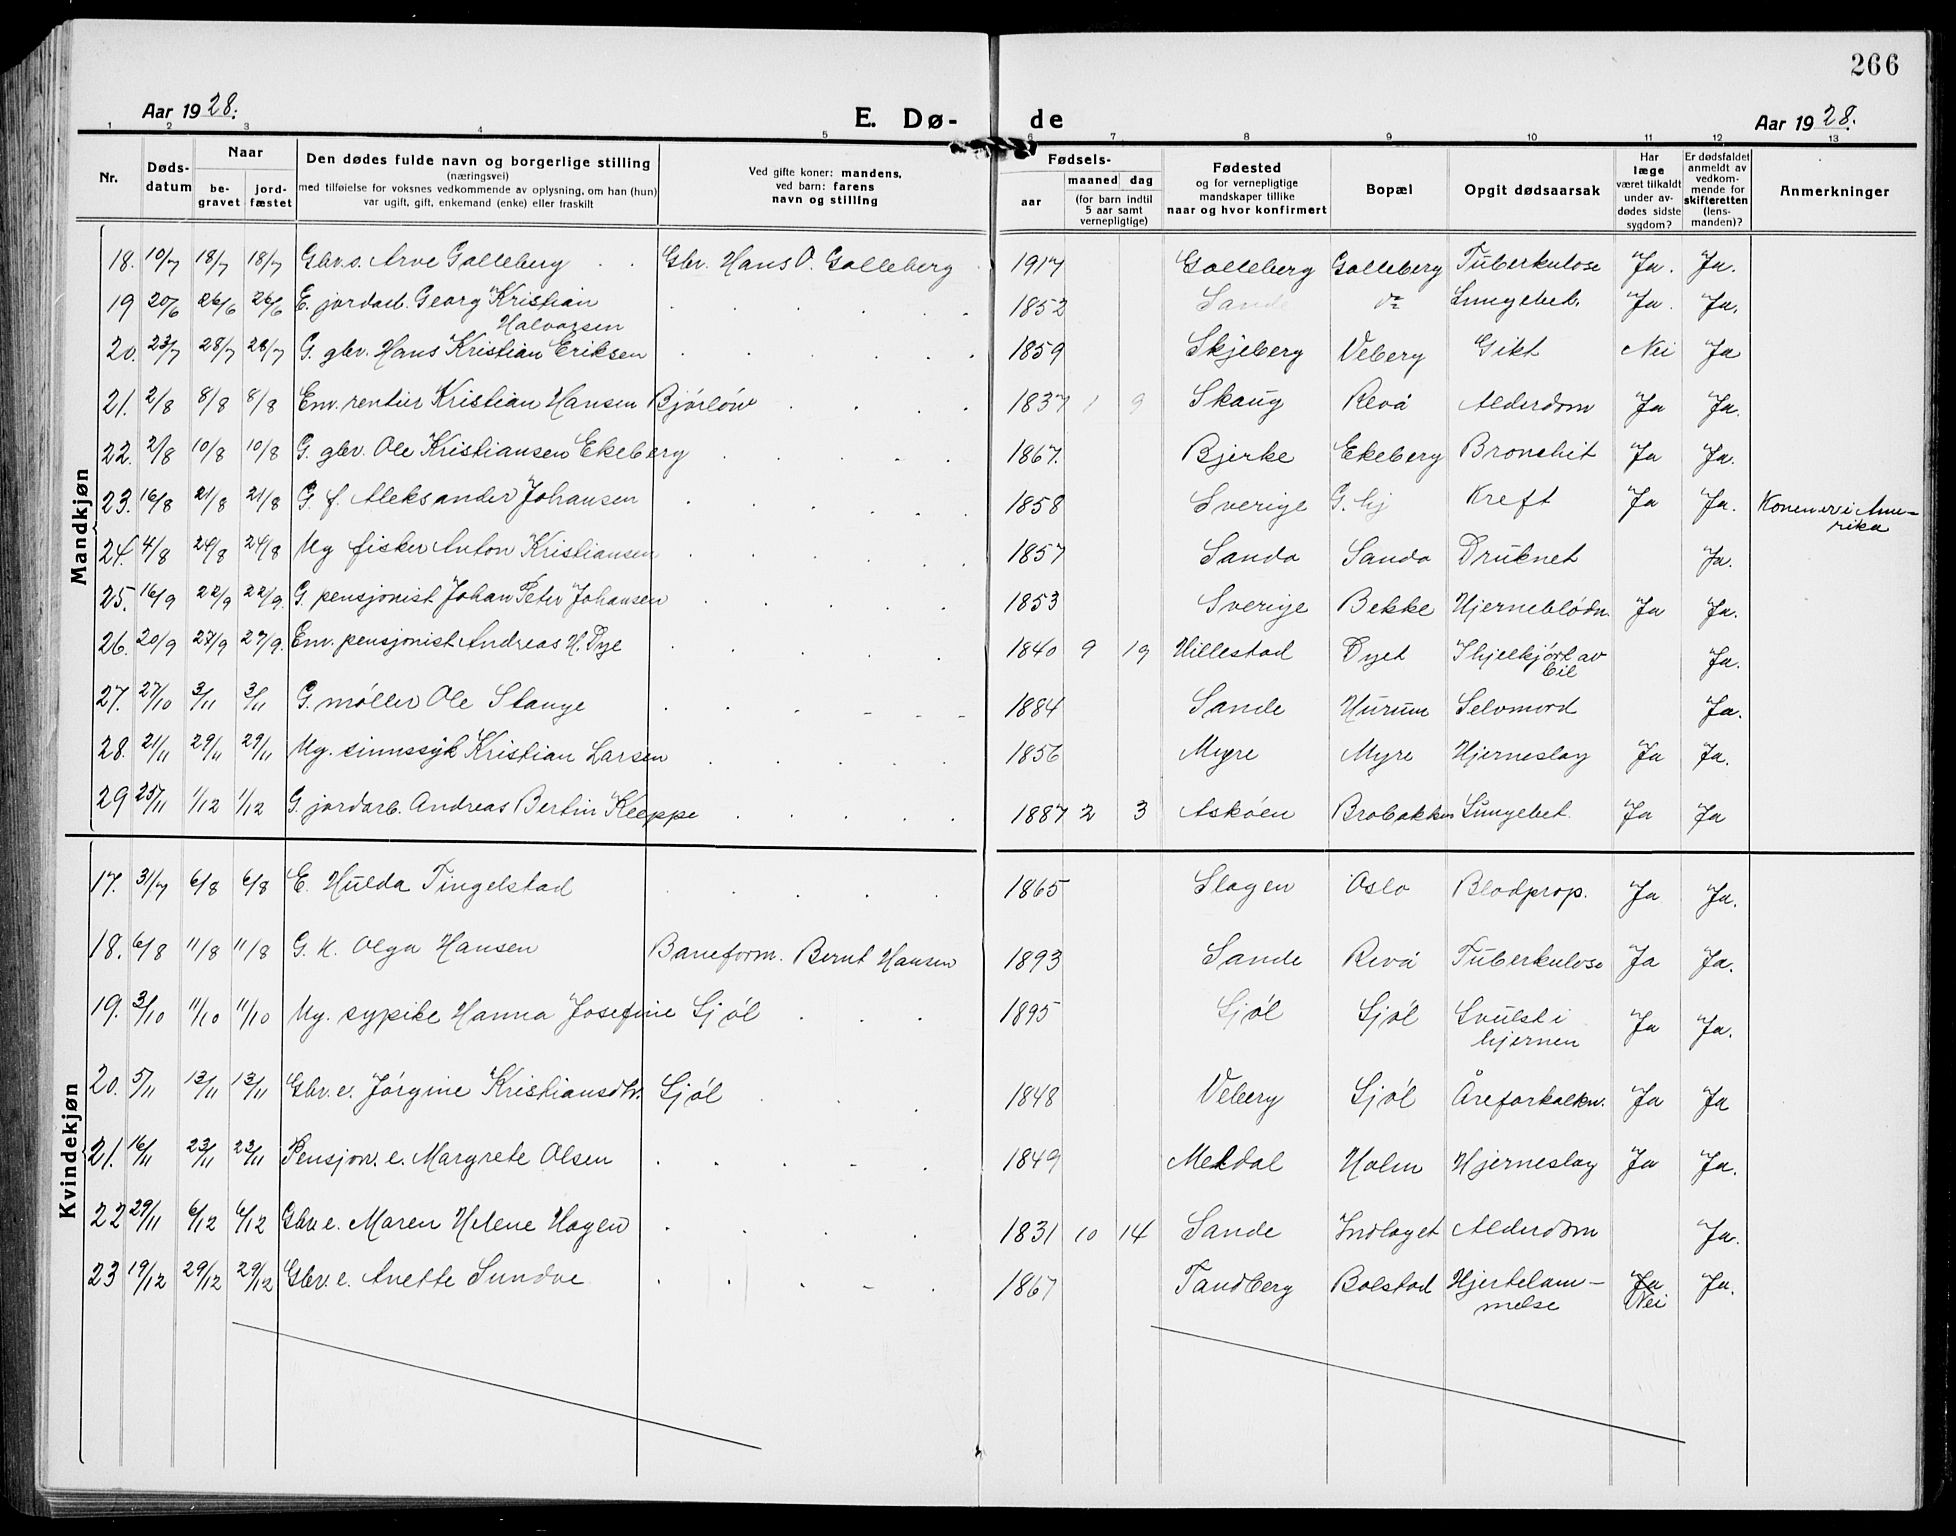 266
Aar 1928.
E. Dø-
de
Aar 1928.
1 2 3 4 5 6 7 8 9 10 11 12 13
Nr.
Døds-
datum
Naar
be-
gravet
jord-
fæstet
Den dødes fulde navn og borgerlige stilling
(næringsvei)
med tilføielse for voksnes vedkommende av oplysning, om han (hun)
var ugift, gift, enkemand (enke) eller fraskilt
Ved gifte koner: mandens,
ved barn: farens
navn og stilling
Fødsels-
aar
maaned
dag
(for barn indtil
5 aar samt
vernepligtige)
Fødested
og for vernepligtige
mandskaper tillike
naar og hvor konfirmert
Bopæl
Opgit dødsaarsak
Har
læge
været tilkaldt
under av-
dødes sidste
sygdom?
Er dødsfaldet
anmeldt av
vedkom-
mende for
skifteretten
(lens-
manden)?
Anmerkninger
Mandkjøn
18. 10/7 18/7 18/7 Gbr.s. Arve Galleberg Gbr. Hans O. Galleberg 1917 Galleberg Galleberg Tuberkulose Ja. Ja.
19 20/6 26/6 26/6 E. jordarb. Georg Kristian
Halvorsen 1852 Sande Do Lungebet. Ja. Ja.
20. 23/7 28/7 28/7 G. gbr. Hans Kristian Eriksen 1859 Skjeberg Veberg Gikt Nei Ja
21. 2/8 8/8 8/8 Em. rentier Kristian Hansen Bjørløw 1837 1 9 Skaug Revå Alderdom Ja Ja.
22. 2/8 10/8 10/8 G. gbr. Ole Kristiansen Ekeberg 1867. Bjerke Ekeberg Bronchit Ja Ja.
23. 16/8 21/8 21/8 G. f. Aleksander Johansen 1858 Sverige G. hj Kreft Ja Ja. Konen er i Ame-
rika
24. 4/8 24/8 24/8 Ug fisker Anton Kristiansen 1857 Sando Sando Druknet Ja.
25. 16/9 22/9 22/9. G. pensjonist Johan Peter Johansen 1853 Sverige Bekke Hjerneblødn. Ja Ja.
26. 20/9 27/9 27/9. Em. pensjonist Andreas H. Dye 1840 9 19 Hillestad Dyet Ihjelkjørt av
bil Ja.
27. 27/10 3/11 3/11 G. møller Ole Stange 1884 Sande Hurum Selvmord Ja.
28. 21/11 29/11 29/11 Ug. sinnssyk Kristian Larsen 1856 Myre Myre Hjerneslag Ja Ja.
29 25/11 1/12 1/12 G. jordarb. Andreas Bertin Kleppe 1887 2 3 Askøen Brobakken Lungebet. Ja Ja
Kvindekjøn
17. 31/7 6/8 6/8 E. Hulda Tingelstad 1865 Slagen Oslo Blodprop. Ja Ja.
18. 6/8 11/8 11/8 G. K. Olga Hansen Baneform. Bernt Hansen 1893 Sande Revå Tuberkulose Ja Ja.
19. 3/10 11/10 11/10 Ug. sypike Hanna Josefine Sjøl 1895 Sjøl Sjøl Svulst i
hjernen Ja Ja.
20. 5/11 13/11 13/11 Gbr.e. Jørgine Kristiansdtr. Sjøl 1848 Veberg Sjøl Åreforkalkn. Ja Ja
21. 16/11 23/11 23/11 Pensjon. e. Margrete Olsen 1849 Meldal Holm Hjerneslag Ja Ja.
22 29/11 6/12 6/12 Gbr e. Maren Helene Hagen 1831 10 14 Sande Indlaget Alderdom Ja.
23 19/12 29/12 29/12 Gbr. e. Anette Sundve 1867 Tandberg Bolstad Hjertelam-
melse Ja
Nei Ja.